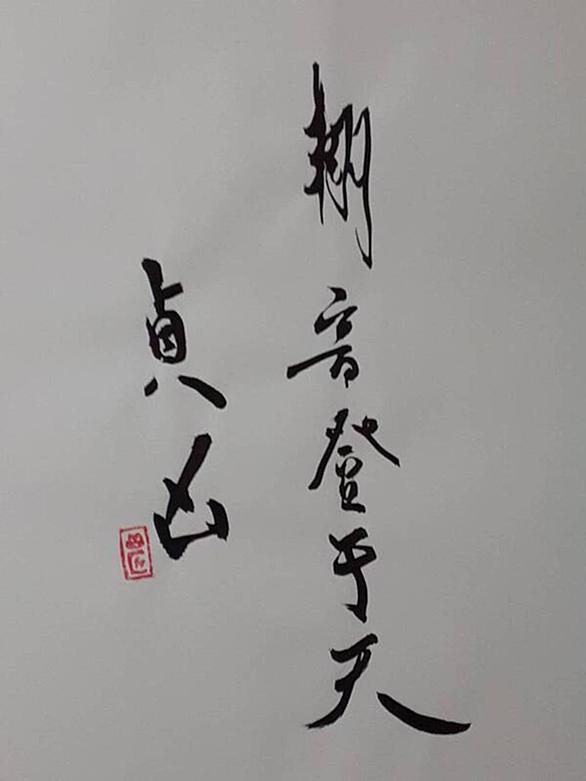 翰音登于天
貞凶